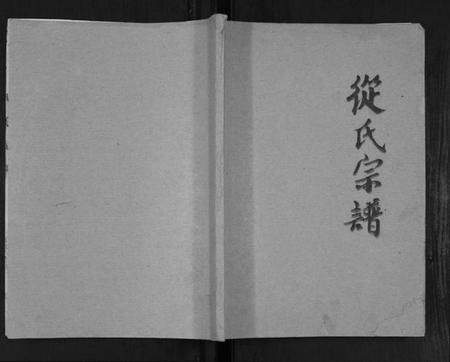 從氏宗譜